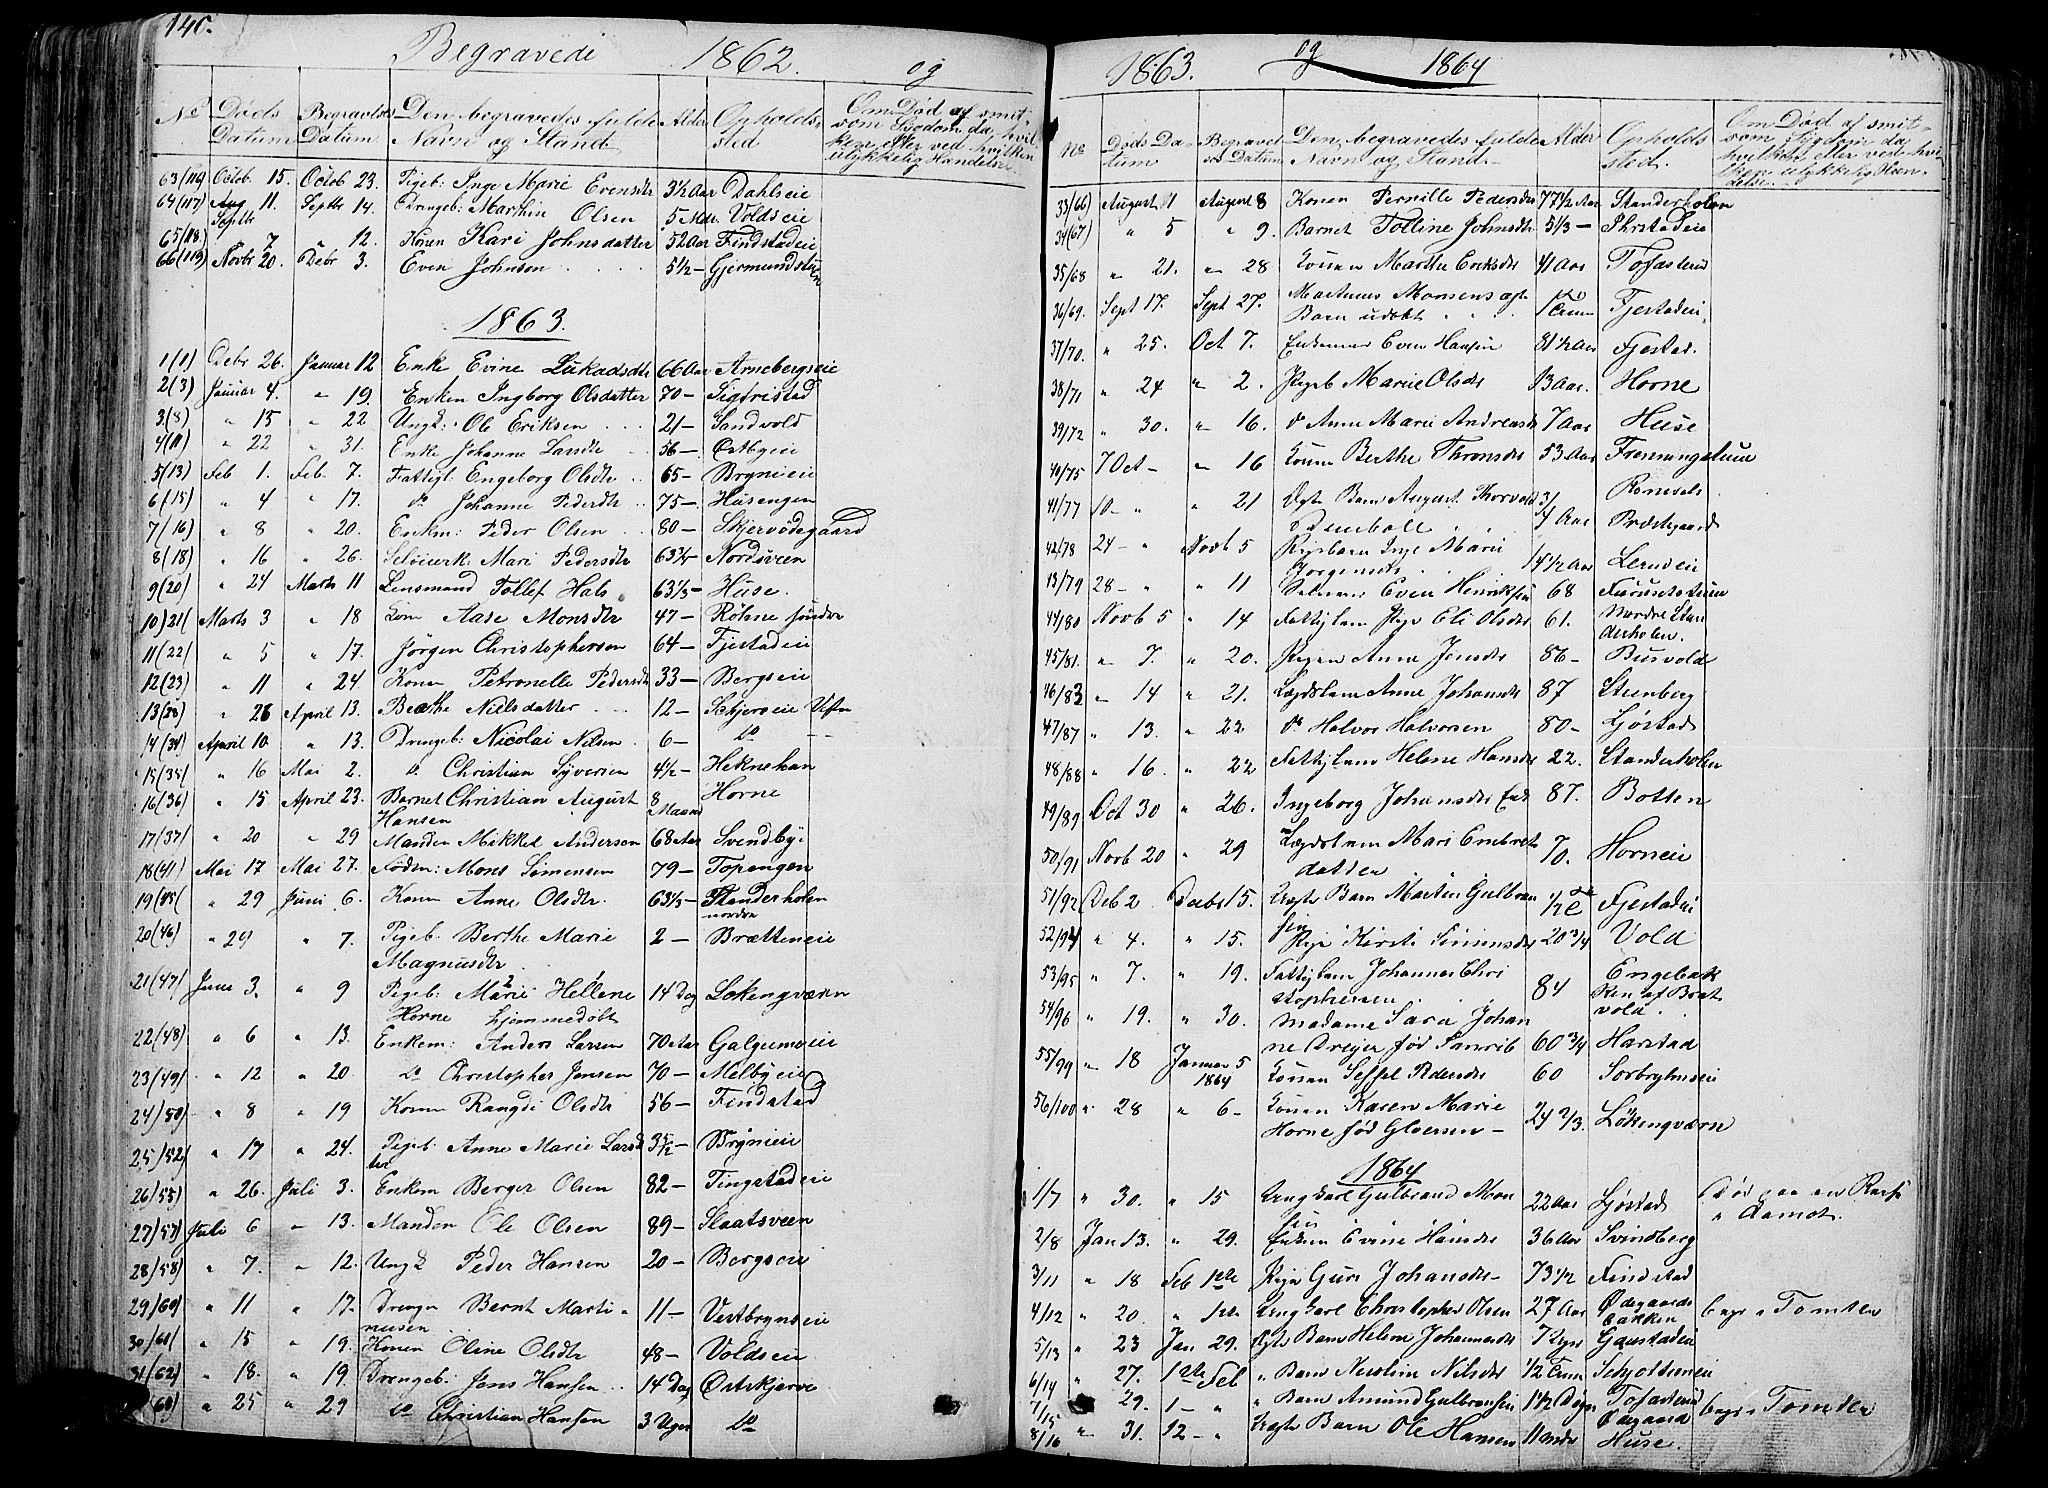 140.
Begravede 1862. og
No Døds Datum Begravelses Datum Den begravedes fulde Navn og Stand Alder Opholdssted Om Død af smitsom Sygdom da hvilken eller ved hvilken ulykkelig Hændelse
63(116) Octob. 15. Octob 23. Pigeb: Inge Marie Evensdtr 3½ Aar Dahlseie
64(117) Aug 11. Septbr 14. Drengeb: Marthin Olsen 5 Mdr. Voldseie
Septbr
65(118) 7 " 12. Konen Kari Johnsdatter 52 Aar Findstadeie
66(119) Novbr 20. Debr 3. Even Johnsen 5½ - Gjermundstuen
1863.
1(1) Debr 26. Januar 12 Enke Evine Lukasdtr 66 Aar Arnebergseie
2(3) Januar 4. " 19. Enken Ingborg Olsdatter 70 - Sigfristad
3(8) " 15 " 22 Ungk: Ole Eriksen 21 - Sandvold
4(11) " 22 " 31. Enke Johanne Larsdtr 56 - Ostbyeie
5(13) Feb 1. Feb. 7. Fattigl. Engeborg Olsdtr 65 - Brynieie
6(15) " 4 " 17. do Johanne Pedersdtr 75 - Husengen
7(16) " 8 " 20. Enkem: Peder Olsen 80 - Skjervedegaard
8(18) " 16 " 26. Mari Pedersdtr 63¾ - Nordsveen
9(20) " 24 Marts 11 Lensmand Tollef Hals 63⅓ - Huse.
10)21( Marts 3 " 18 Kone Aase Monsdtr 47 - Röhne søndre
11(22) " 5 " 17. Jørgen Christophersen 64 - Fjestadeie
12(23) " 11 " 24 Konen Petronelle Pedersdtr 33 - Bergseie
13(28) " 26 April 13. Berthe Nielsdatter 12 - Schjerveie
14(34) April 10 " 13. Drengeb: Nicolai Nilsen 6 - do
15(35) " 16 Mai 2. do Christian Syversen 4½ - Heknehan
16(36) " 15 April 23. Barnet Christian August Hansen 8 Maand Horne
17(37) " 20 " 29 Manden Mikkel Andersen 68 Aar Svendby
18(41) Mai 17 Mai 27. Føderm: Mons Simensen 79 - Topengen
19(45) " 29 Juni 6. Konen Anne Olsdtr. 63⅓ - Standerholen nordre
20(46) " 29 " 7. Pigeb: Berthe Marie Magnusdtr 2 - Brætteneie
21(47) Juni 3. " 9 Pigeb: Marie Hellene Horne hjemmedøbt 14 Dag Løkengværn
22(48) " 6 " 13. Enkem: Anders Larsen 70 Aar Galgumeie
23(49) " 12 " 20 do Christopher Jensen 70 - Melbyeie
24(50) " 8 " 19 Konen Rangdi Olsdtr 56 - Findstad
25(52) " 17 " 24. Pigeb: Anne Marie Larsdtr 3½ - Brynieie
26(55) " 26. Juli 3. Enkem Berger Olsen 82 - Tingstadeie
27(57) Juli 6 " 13. Manden Ole Olsen 89 - Slaatsveen
28(58) " 7. " 12. Ungk Peder Hansen 20 - Bergseie
29(60) " 11 " 17. Drengen Bernt Martinusen 11 - Vestbrynseie
30(61) " 15 " 19. Konen Oline Olsdtr 48 - Voldseie
31(62) " 18. " 19 Drengeb: Jens Hansen 14 Dag Østskjerve
" 25 " 29 do Christian Hansen 3 Uger do
1863. og 1864
No Døds Datum Begravelses Datum Den begravedes fulde Navn og Stand Alder Opholdssted. Om Død af smitsom Sygdom da hvilken eller ved hvilken ulykkelig Hændelse.
33(66) August 1 August 8 Konen Pernille Pedersdtr 77½ Aar Standerholen
34(67) " 5 " 9. Barnet Tolline Johnsdtr 5⅓ -
35/68 " 21. " 28 Konen Marthe Eriksdtr 41 Aar Tofasterud
36/69. Sept 17. Sept 27. Martinus Monsens ægte Barn udøbt Fjestadeie
37/70. " 25. Oct 7. Enkemand Even Hansen 81½ Aar Fjestad.
38/71 " 24 " 2. Pigeb Marie Olsdtr 13 Aar. Horne
39/72 " 30. " 16. do Anne Marie Andreasdtr 7 Aar Huse
40/75 7 Oct - " 16 Konen Berthe Thronsdtr 53 Aar Fremmingstuen
41/77 10 - " " 21 Ægte Barn August Thorvald ¾ Aar Romsdals Præstegaard
42/78 24 - " Novb 5 Pigebarn Inge Marie Jørgensdtr 14½ Aar Lerudeie
43/79 28 - " " 11 Even Henriksen 68 Furusetstuen
44/80 Novb 5 " 14 Fattiglem Pige Eli Olsdtr 61. Nordre Standerholen.
45/81. " 7. " 20. Pigen Anne Jensdtr 86 - Busvold
46/83 " 14 " 21. Lægdslem Anne Johansdtr 87 Steenberg
47/87 " 13. " 22 do Halvor Halvorsen 80 - Ljøstad
48/88 " 16. " 22 Fattiglem Helene Hansdtr 22. Standerholen
49/89 Oct 30 " 26. Ingeborg Johansdtr Enke 87. Botten
50/91 Novb 20 " 29 Lægdslem Mari Embretsdatter 70. Horneie
51/92 Deb 2 Decbr 15. Uægte Barn Martin Gulbransen ½ Fjestadeie
52/94 " 4. " 15. Pige Kirsti Simensdtr 20¾ Vold
53/95 " 7. " 19. Fattiglem Johannes Christophersen 84 Engebakken af Bratvold.
54/96 " 19. " 30. Madame Sara Johanne Dreyer fød 60¾ Harstad
55/99 " 18 Januar 5 1864 Konen Siffel Pedersdtr 60 Sorbryhnseie
56/100 " 28 " 6 - Konen Karen Marie Horne fød Gloersen - 24⅔. Lökengværn
1864
1/7 " 30. " 15 Ungkarl Gulbrand Monsen 22 Aar Ljøstad Død paa en Reise i Aamot.
2/8 Jan 13. " 29. Enken Evine Hansdtr 36 Aar Svindberg
3/11 " 18 Feb 1ste Pige Guri Johansdtr - 73½ Findstad
4/12 " 20. " 1ste Ungkarl Christopher Olsen 27 Aar Ødegaardsbakken begr i Tomter
5/13 " 23 Jan 29. Ægte Barn Helene Johannesdtr 7 Uger Gaustadeie
6/14 " 27. 1ste Feb " Barn Nicoline Nilsdtr ½ Time Schjøttseneie
7/15 " 29. 1 - " " Barn Amund Gulbransen 1½ Døgn Tofasterud Ødegaard begr i Tomter
8/16 " 31. 12 - " Uægte Barn Ole Hansen 11 Mdr Huse.